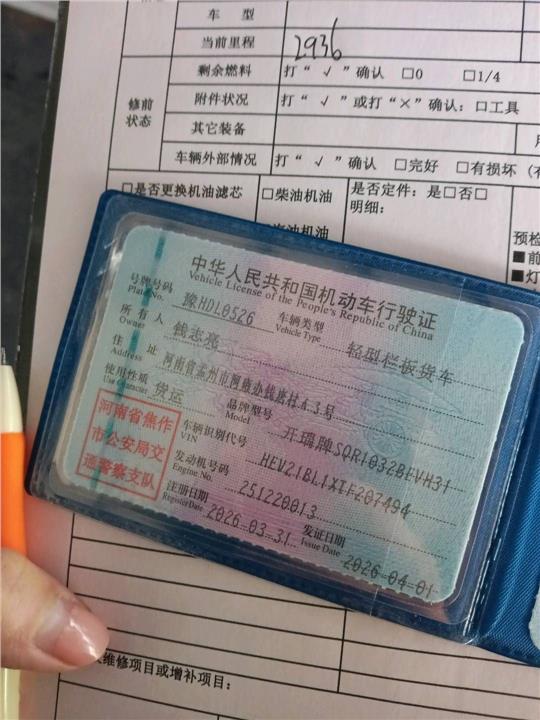 车 型
当前里程 2936
剩余燃料 打“√”确认 □0 □1/4
修前状态
附件状况 打“√”或打“×”确认：□工具
其它装备
车辆外部情况 打“√”确认 □完好 □有损坏
□是否更换机油滤芯 □柴油机油 是否定件：是□否□
明细：
预检
■前
■灯
中华人民共和国机动车行驶证
Vehicle License of the People's Republic of China
号牌号码 豫HDL0526 车辆类型 轻型栏板货车
Plate No. Vehicle Type
所有人 钱志亮
Owner
住 址 河南省孟州市河雍办钱唐村43号
Address
使用性质 货运 品牌型号 开瑞牌SQR1032BEVH31
Use Character Model
车辆识别代号 HEV21BL1XTF207494
VIN
河南省焦作
市公安局交
通警察支队
发动机号码 251220013
Engine No.
注册日期 2026-03-31 发证日期 2026-04-01
Register Date Issue Date
维修项目或增补项目：